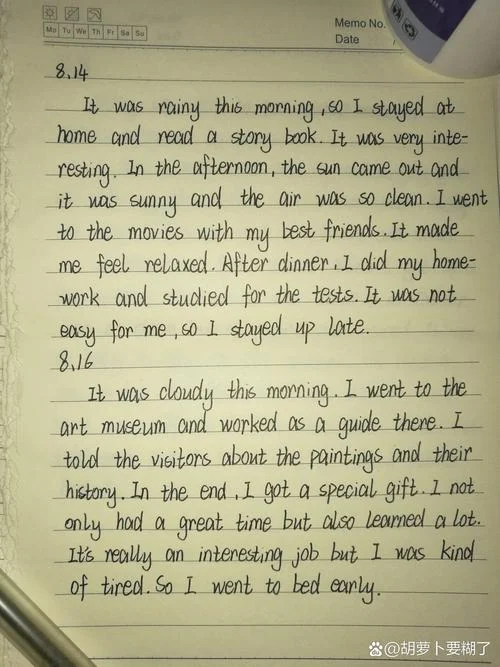 Mo Tu We Th Fr Sa Su
Memo No.
Date /
8.14
It was rainy this morning, so I stayed at
home and read a story book. It was very inte-
resting. In the afternoon, the sun came out and
it was sunny and the air was so clean. I went
to the movies with my best friends. It made
me feel relaxed. After dinner, I did my home-
work and studied for the tests. It was not
easy for me, so I stayed up late.
8.16
It was cloudy this morning. I went to the
art museum and worked as a guide there. I
told the visitors about the paintings and their
history. In the end, I got a special gift. I not
only had a great time but also learned a lot.
It's really an interesting job but I was kind
of tired. So I went to bed early.
@胡萝卜要糊了